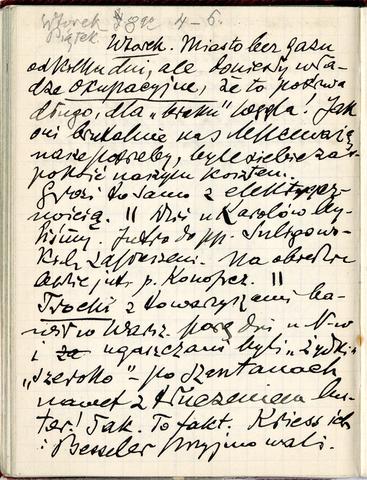 Wtorek
Piątek 4-6.
Wtorek. Miasto bez gazu
od kilku dni, ale donieśli wła-
dze okupacyjne, że to potrwa
długo, dla "braku" węgla! Jak
oni brutalnie nas lekceważą
nasze potrzeby, byle siebie zas-
pokoić naszym kosztem.
Grozi to samo z elektrycz-
nością. || Dziś u Karolów by-
liśmy. Jutro do pp. Suligow-
skich zaproszeni. Na obiedzie
będzie już p. Konopcz. ||
Trocki z towarzyszami ba-
wił w Warsz. parę dni
i ugaszczani byli "żydki
"szeroko" - po
nawet z tłuczeniem lus-
ter! Tak. To fakt. Kriess ich
i Beseler przyjmowali.